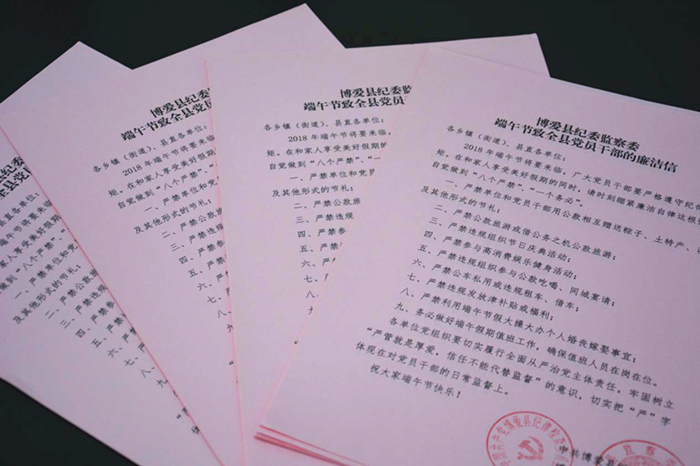 博爱县纪委监
端午节致全县党员
各乡镇(街道)、县直各单位:
2018年端午节将要来临,
矩。在和家人享受美好假期
自觉做到“八个严禁”、“一
一、严禁单位和党
及其他形式的节礼;
二、严禁公款
三、严禁违规
四、严禁
五、严禁
六、严
七、
八、
博爱县纪委监
端午节致全县党员
各乡镇(街道)、县直各单位:
2018年端午节将要来临,
矩。在和家人享受美好假期的
自觉做到“八个严禁”、“一
一、严禁单位和党
及其他形式的节礼;
二、严禁公款
三、严禁违规
四、严禁
五、严禁
六、严
七、
八、
九
博爱县纪委监察委
端午节致全县党员干部的廉洁信
各乡镇(街道)、县直各单位:
2018年端午节将要来临,广大党员干部要严格遵守纪
矩。在和家人享受美好假期的同时,请时刻绷紧廉洁自律这根
自觉做到“八个严禁”、“一个务必”。
一、严禁单位和党员干部用公款相互赠送粽子、土特产、
及其他形式的节礼;
二、严禁公款旅游或借公务之机公款旅游;
三、严禁违规组织节日庆典活动;
四、严禁参与高消费娱乐健身活动;
五、严禁违规组织参与公款吃喝、同城宴请;
六、严禁公车私用或违规租车、借车;
七、严禁违规发放津补贴或福利;
八、严禁利用端午节假大操大办个人婚丧嫁娶事宜;
九、务必做好端午假期值班工作,确保值班人员在岗在位。
各单位党组织要切实履行全面从严治党主体责任,牢固树立
“严管就是厚爱,信任不能代替监督”的意识,切实把“严”字
体现在对党员干部的日常监督上。
祝大家端午节快乐!
中共博爱